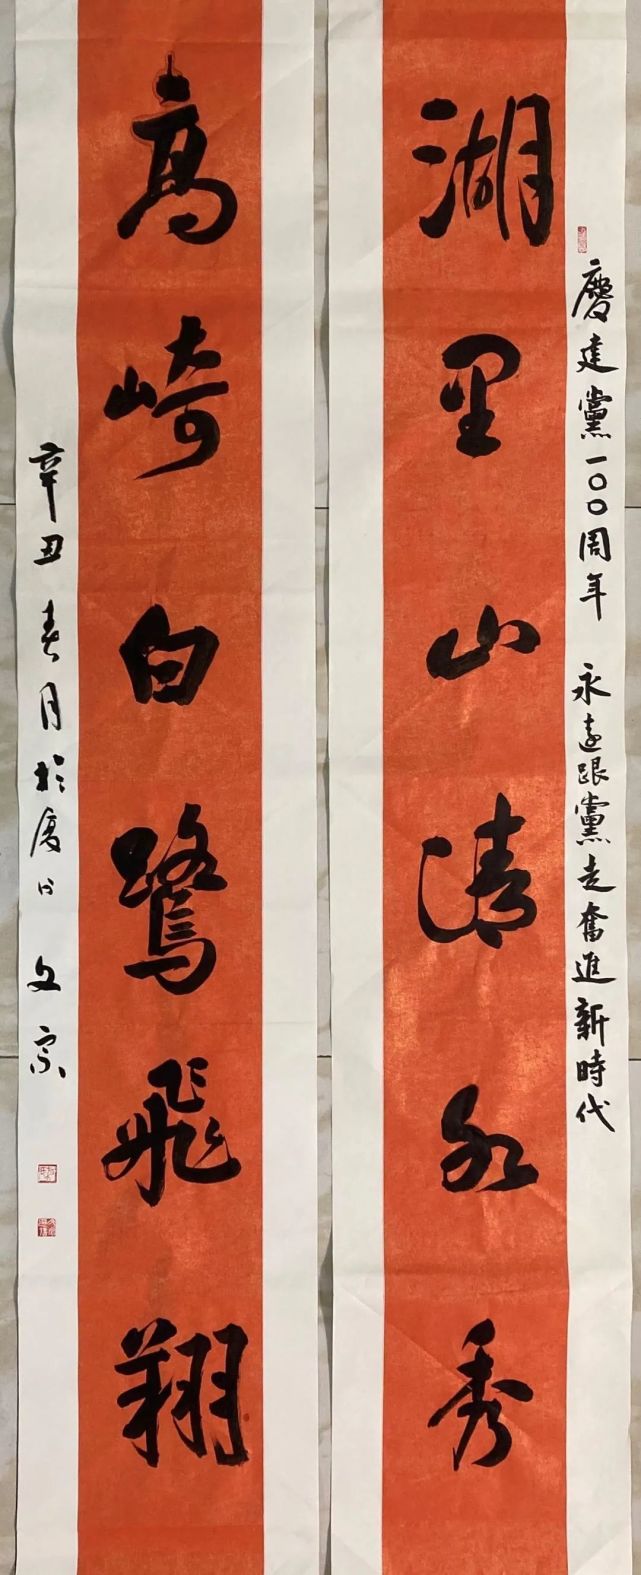 慶建黨一〇〇周年 永遠跟黨走奮進新時代
湖里山清水秀
高崎白鷺飛翔
辛丑春月於廈門 文宗